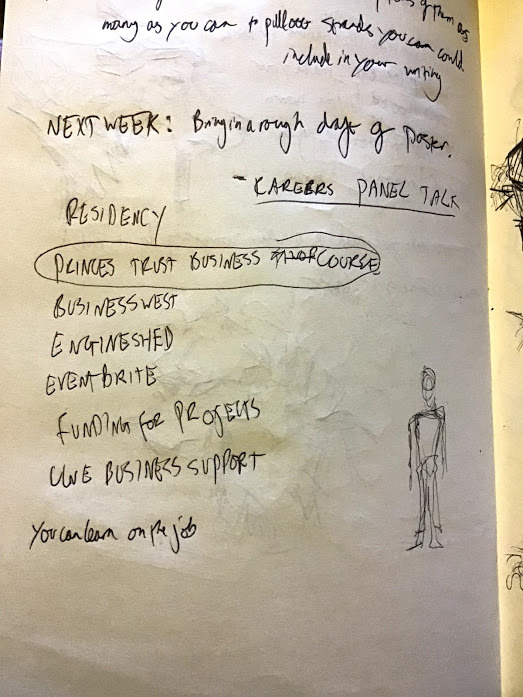 of them as
many as you can to pull out strands you can could
include in your writing
NEXT WEEK: Bring in a rough draft of poster.
- CAREERS PANEL TALK
RESIDENCY
PRINCES TRUST BUSINESS COURSE
BUSINESSWEST
ENGINESHED
EVENTBRITE
FUNDING FOR PROJECTS
UWE BUSINESS SUPPORT
You can learn on the job